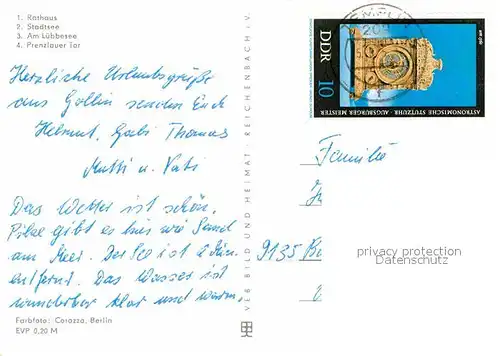 1. Rathaus
2. Stadtsee
3. Am Lübbesee
4. Prenzlauer Tor
Herzliche Urlaubsgrüße
aus Gollin senden Euch
Helmut, Gabi Thomas
Mutti u. Vati
Das Wetter ist schön.
Pilze gibt es hier wie Sand
am Meer. Der See ist 2 Min.
entfernt. Das Wasser ist
wunderbar klar und warm.
Farbfoto: Corazza, Berlin
EVP 0,20 M
VEB BILD UND HEIMAT · REICHENBACH i. V.
TEMPLIN
209
DDR 10
ASTRONOMISCHE STUTZUHR · AUGSBURGER MEISTER
um 1560
Familie
9135
privacy protection
Datenschutz